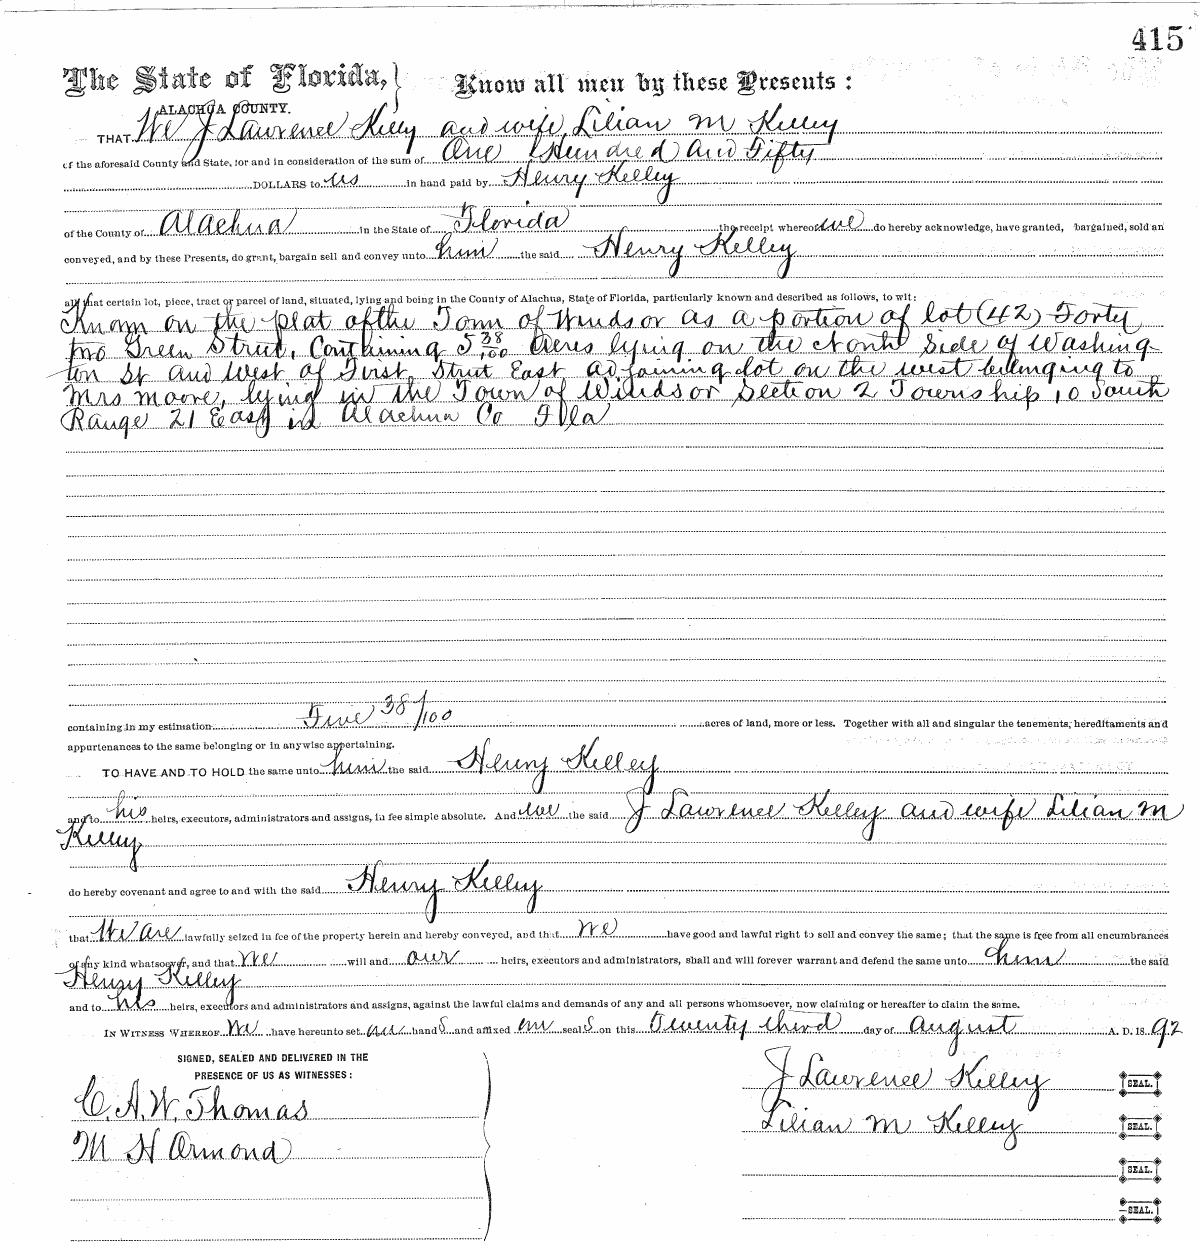 415
The State of Florida, } Know all men by these Presents :
ALACHUA COUNTY.
THAT We J Lawrence Kelly and wife Lilian M Kelley
of the aforesaid County and State, for and in consideration of the sum of One Hundred and Fifty
DOLLARS to us in hand paid by Henry Kelley
of the County of Alachua in the State of Florida the receipt whereof we do hereby acknowledge, have granted, bargained, sold an
conveyed, and by these Presents, do grant, bargain sell and convey unto him the said Henry Kelley
all that certain lot, piece, tract or parcel of land, situated, lying and being in the County of Alachua, State of Florida, particularly known and described as follows, to wit:
Known on the plat of the Town of Windsor as a portion of lot (42) Forty
two Green Street, Containing 5 38/100 acres lying on the North Side of Washing-
ton St and West of First Street East adjoining lot on the west belonging to
Mrs Moore, lying in the Town of Windsor Section 2 Township 10 South
Range 21 East in Alachua Co Fla
containing in my estimation Five 38/100 acres of land, more or less. Together with all and singular the tenements, hereditaments and
appurtenances to the same belonging or in anywise appertaining.
TO HAVE AND TO HOLD the same unto him the said Henry Kelley
and to his heirs, executors, administrators and assigns, in fee simple absolute. And we the said J Lawrence Kelley and wife Lilian M
Kelley
do hereby covenant and agree to and with the said Henry Kelley
that We are lawfully seized in fee of the property herein and hereby conveyed, and that We have good and lawful right to sell and convey the same; that the same is free from all encumbrances
of any kind whatsoever, and that We will and our heirs, executors and administrators, shall and will forever warrant and defend the same unto him the said
Henry Kelley
and to his heirs, executors and administrators and assigns, against the lawful claims and demands of any and all persons whomsoever, now claiming or hereafter to claim the same.
IN WITNESS WHEREOF We have hereunto set our hand s and affixed our seal s on this Twenty third day of August A. D. 18 92
SIGNED, SEALED AND DELIVERED IN THE
PRESENCE OF US AS WITNESSES:
C. A. W. Thomas
M H Ormond
J Lawrence Kelley SEAL.
Lilian M Kelley SEAL.
SEAL.
SEAL.